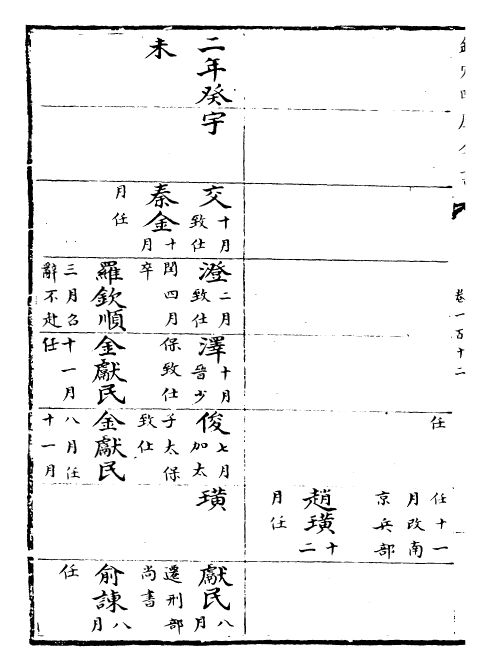 卷一百十二
任
任十一
月改南
京兵部
趙璜十二
月任
二年癸
未
宇
交十月
致仕
秦金十月
任
澄二月
致仕
閏四月
卒
羅欽順
三月召
辭不赴
澤十月
晉少
保致仕
金獻民
十一月
任
俊七月
加太
子太保
致仕
金獻民
八月任
十一月
璜
獻民八月
遷刑部
尚書
俞諫八月
任